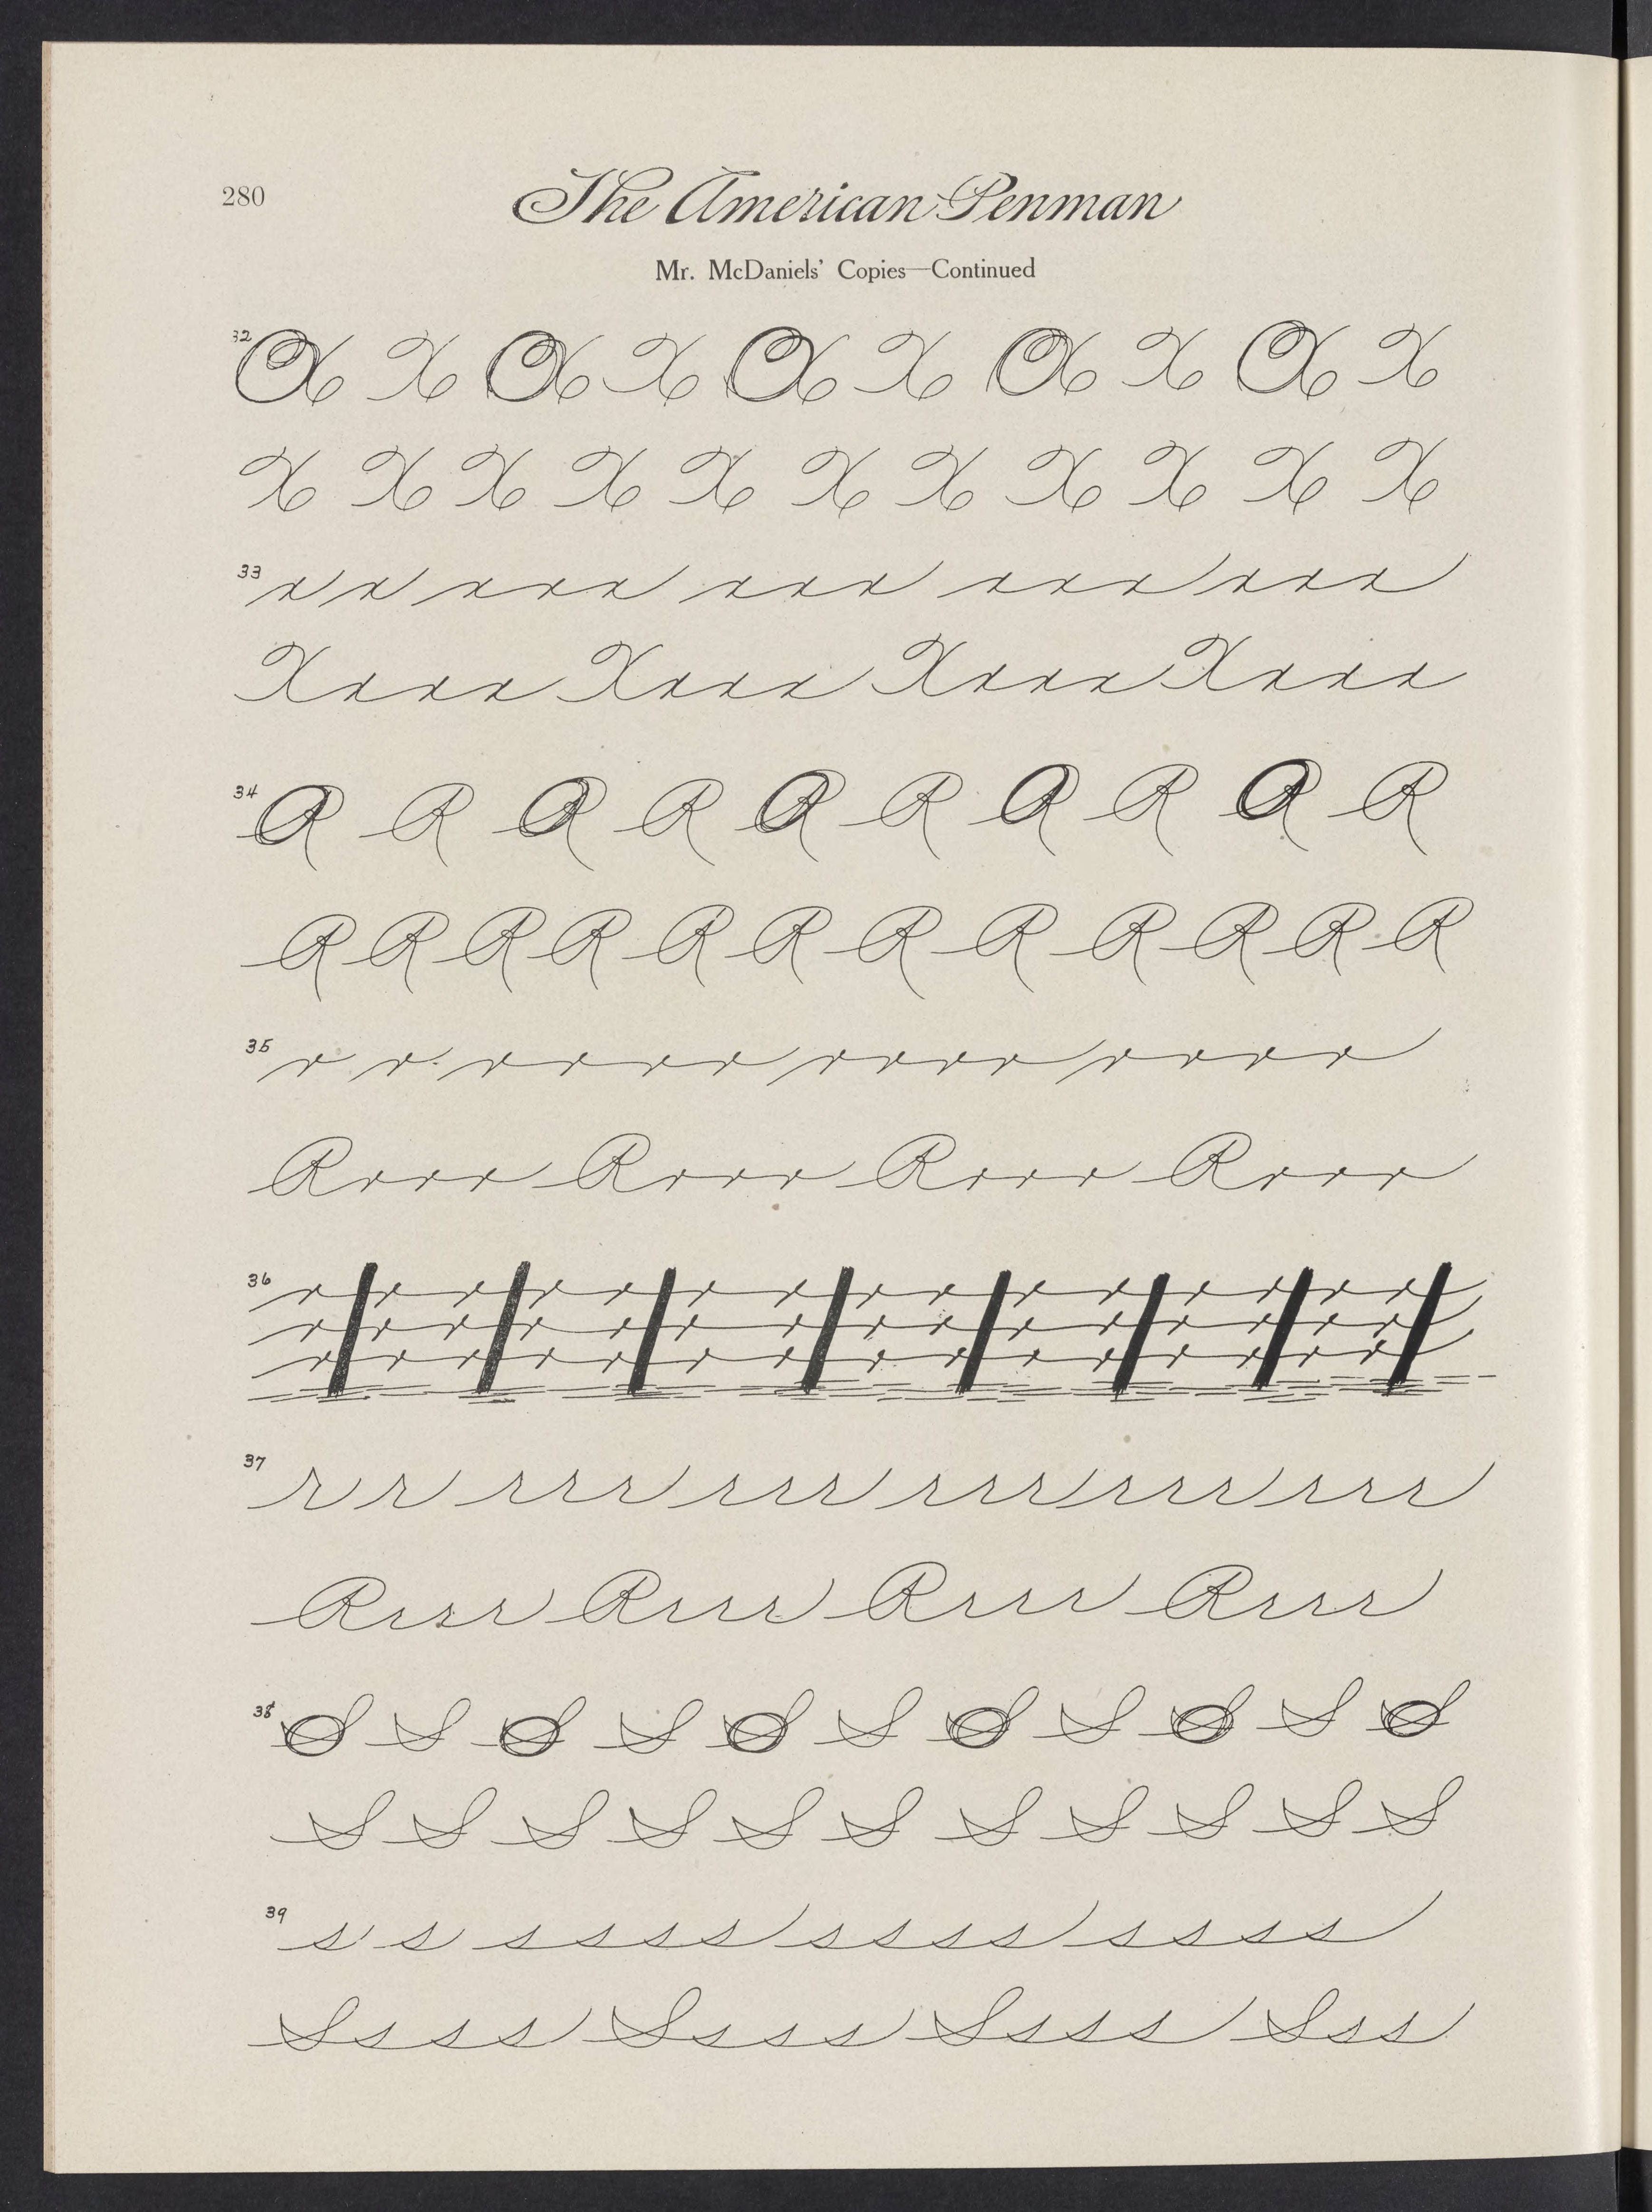 280
The American Penman
Mr. McDaniels' Copies—Continued
32 O X X O X X O X X O X X O X X
X X X X X X X X X X X
33 x x x x x x x x x x x x x x
X x x x x X x x x x X x x x x X x x x x
34 R R R R R R R R R R
R R R R R R R R R R R R
35 r r r r r r r r r r r r r r
R r r r r R r r r r R r r r r R r r r r
36
37 r r r r r r r r r r r r r r r r r
R r r r r R r r r r R r r r r R r r r r
38 S S S S S S S S S S S
S S S S S S S S S S S
39 s s s s s s s s s s s s s s
S s s s s S s s s s S s s s s S s s s